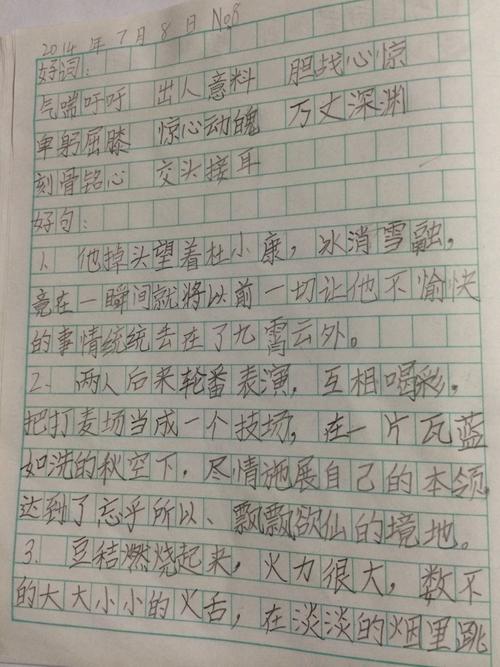 2014年7月8日 No8
好词:
气喘吁吁 出人意料 胆战心惊
卑躬屈膝 惊心动魄 万丈深渊
刻骨铭心 交头接耳
好句:
1. 他掉头望着杜小康，冰消雪融，
竟在一瞬间就将以前一切让他不愉快
的事情统统去在了九霄云外。
2. 两人后来轮番表演，互相喝彩，
把打麦场当成一个技场，在一片瓦蓝
如洗的秋空下，尽情施展自己的本领，
达到了忘乎所以、飘飘欲仙的境地。
3. 豆秸燃烧起来，火力很大，数不
的大大小小的火舌，在淡淡的烟里跳